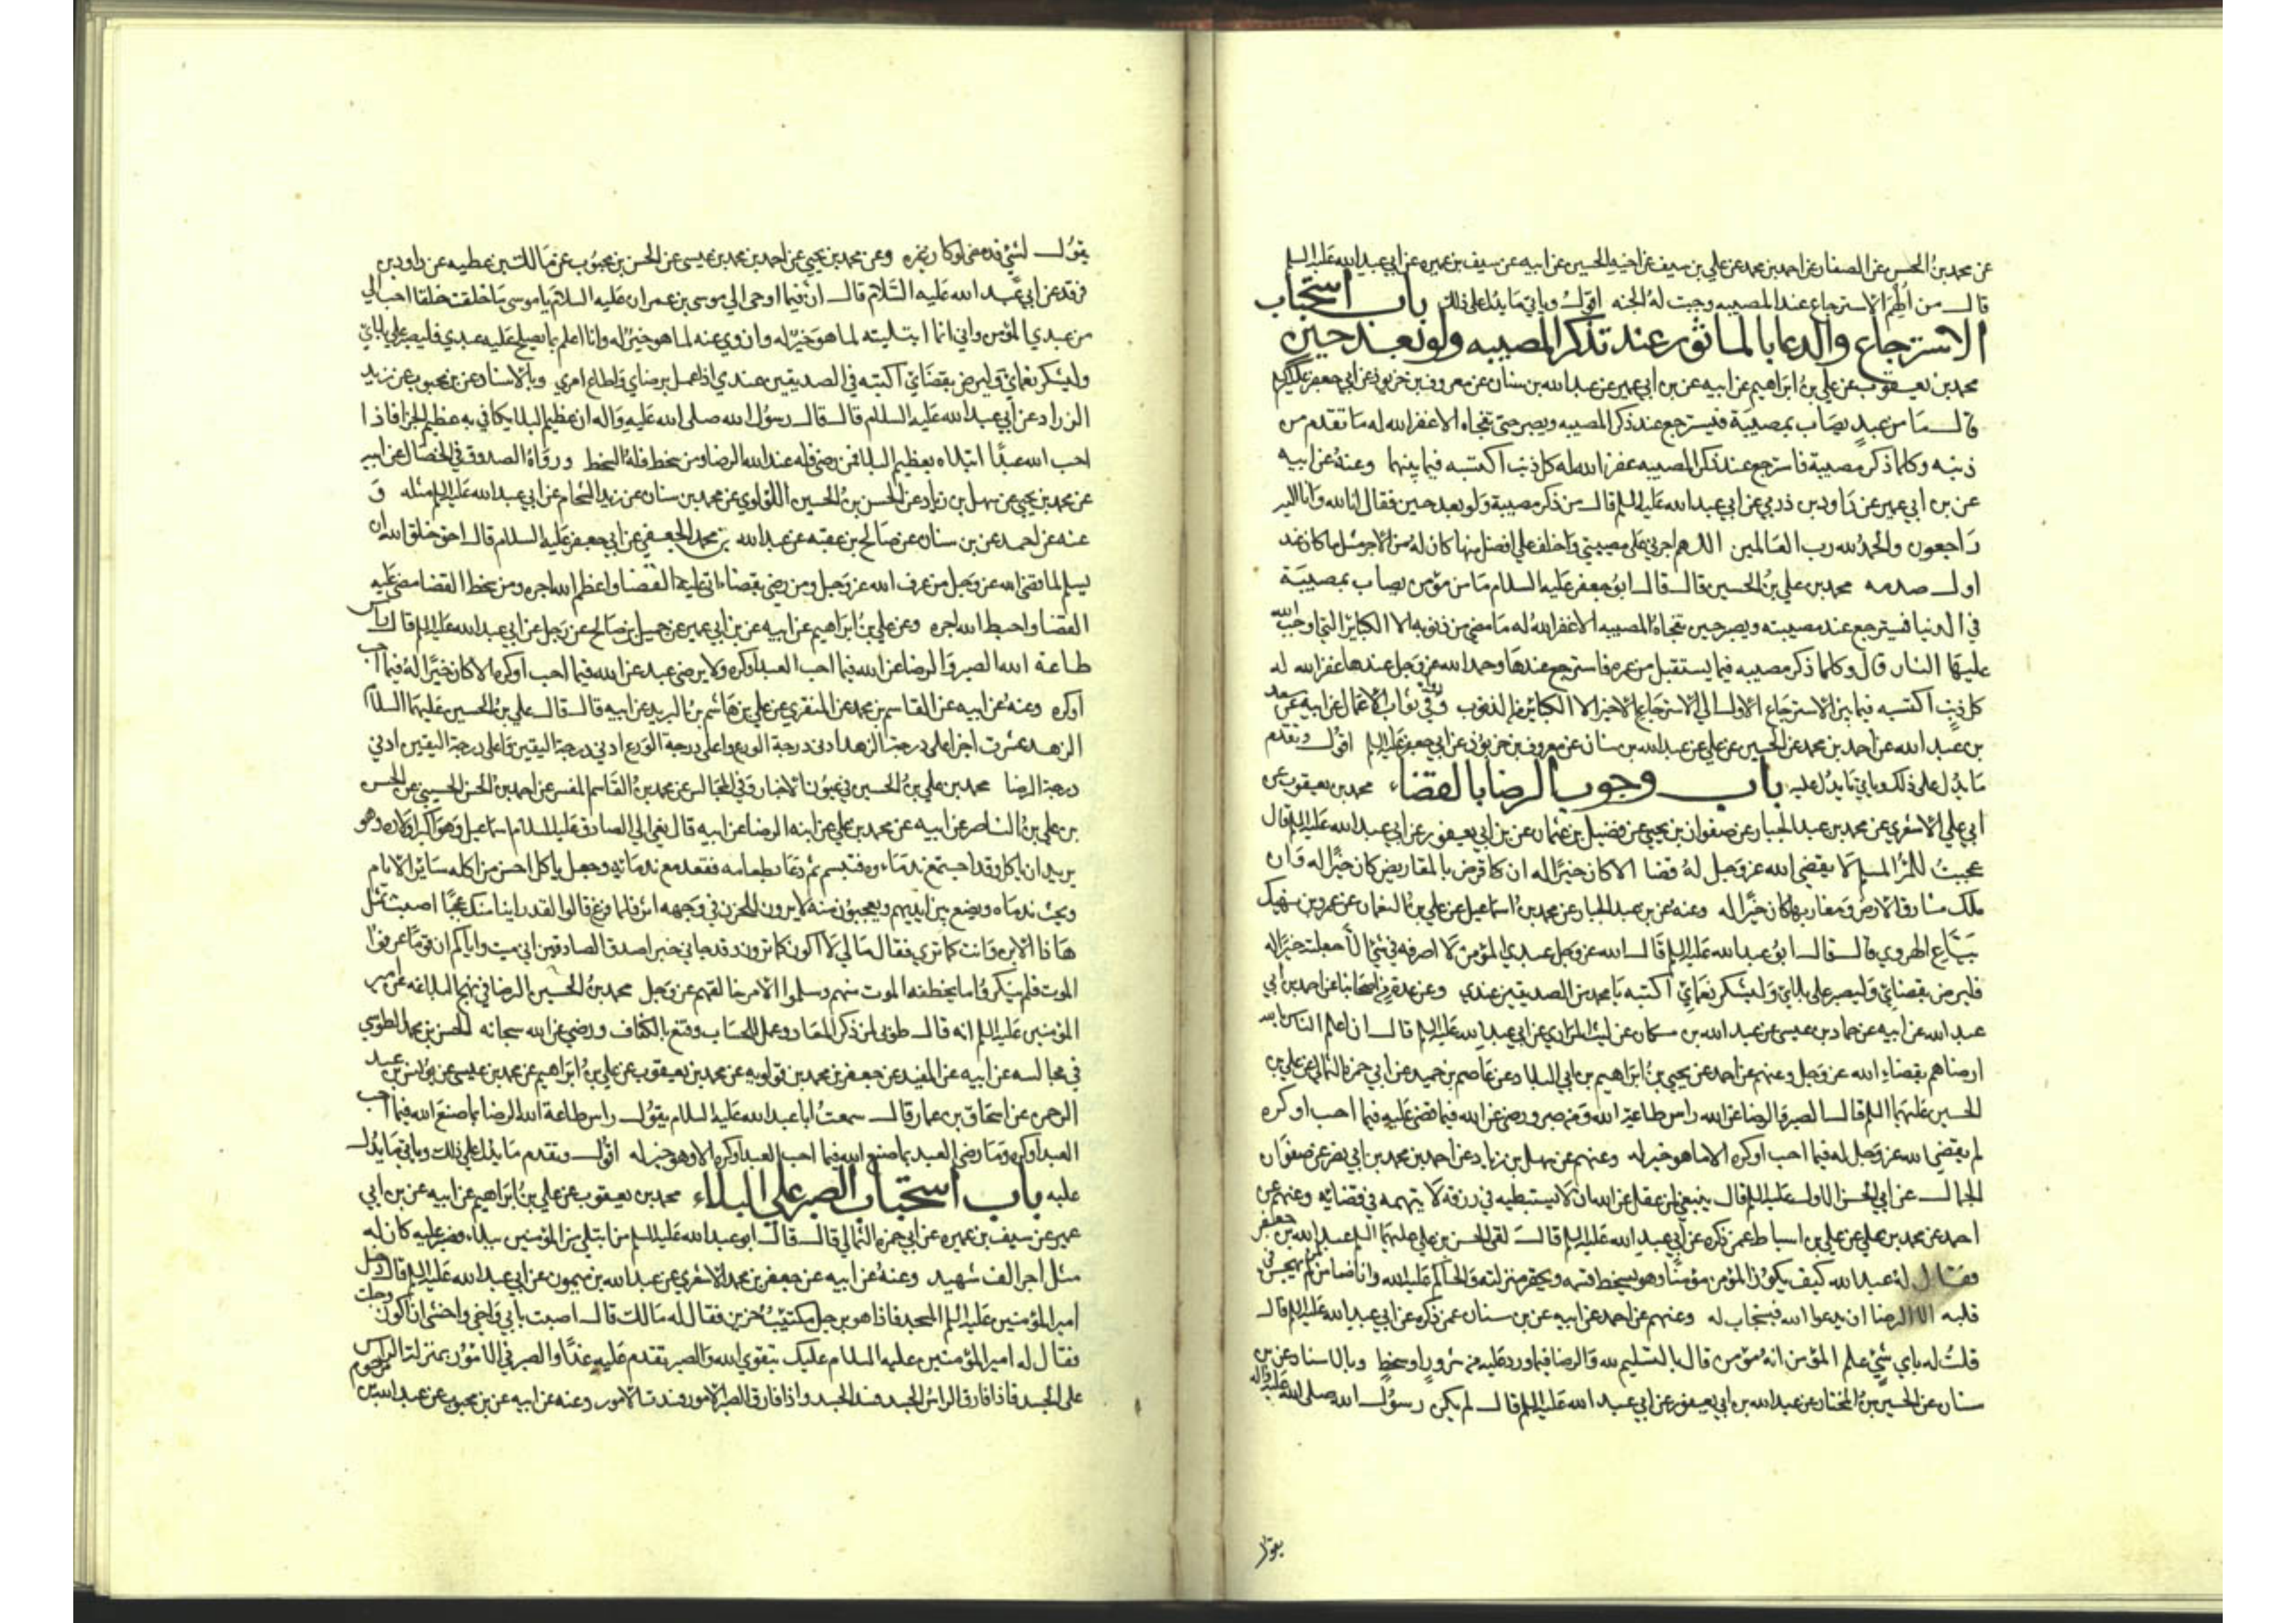 عن محمد بن الحسن عن الصفار عن احمد بن محمد عن علي بن سيف عن اخيه الحسين عن ابيه عن سيف بن عميره عن ابي عبد الله عليه السلم
قال من أُلهِمَ الاسترجاع عند المصيبه وجبت لهُ الجنه اقول وياتي ما يدل على ذلك باب استحباب
الاسترجاع والدعا بالماثور عند تذكر المصيبه ولو بعد حين
محمد بن يعقوب عن علي بن ابراهيم عن ابيه عن بن ابي عمير عن عبد الله بن سنان عن معروف بن خربوذ عن ابي جعفر عليه السلم
قال ما من عبدٍ يصاب بمصيبة فيسترجع عند ذكر المصيبه ويصبر حتى تفجاه الا غفر الله له ما تقدم من
ذنبه وكلما ذكر مصيبة فاسترجع عند ذكر المصيبه غفر الله له كل ذنب اكتسبه فيما بينهما وعنهُ عن ابيه
عن بن ابي عمير عن داود بن زربي عن ابي عبد الله عليه السلم قال من ذكر مصيبة ولو بعد حين فقال انا لله وانا اليه
راجعون والحمد لله رب العالمين اللهم اجرني على مصيبتي واخلف علي افضل منها كان له من الاجر مثل ما كان عند
اول صدمه محمد بن علي بن الحسين قال قال ابو جعفر عليه السلام ما من مؤمن يصاب بمصيبة
في الدنيا فيسترجع عند مصيبته ويصبر حين تفجاهُ المصيبه الا غفر اللهُ له ما مضى من ذنوبه الا الكبائر التي اوجب الله
عليها النار قال وكلما ذكر مصيبه فيما يستقبل من عمره فاسترجع عندها وحمد الله عز وجل عندها غفر الله له
كل ذنبٍ اكتسبه فيما بين الاسترجاع الاول الي الاسترجاع الاخير الا الكبائر من الذنوب وفي ثواب الاعمال عن ابيه عن سعد
بن عبد الله عن احمد بن محمد عن الحسين عن علي عن عبد الله بن سنان عن معروف بن خربوذ عن ابي جعفر عليه السلم اقول وتقدم
ما يدل على ذلك وياتي ما يدل عليه باب وجوب الرضا بالقضاء محمد بن يعقوب عن
ابي علي الاشعري عن محمد بن عبد الجبار عن صفوان بن يحيي عن فضيل بن عثمان عن بن ابي يعفور عن ابي عبد الله عليه السلم قال
عجبتُ للمرُ المسلم لا يقضي الله عز وجل لهُ قضا الا كان خيرًا له ان كا قرض بالمقاريض كان خيرًا له وان
ملك مشارق الارض ومغاربها كان خيرًا له وعنهُ عن بن عبد الجبار عن محمد بن اسماعيل عن علي بن النعمان عن عمرو بن نهيك
بيّاع الهروي قال قال ابو عبد الله عليه السلم قال الله عز وجل عبدي المؤمن لا اصرفه في شي الا جعلته خيرًا له
فليرض بقضائي وليصبر على بلائي وليشكر نعمائي اكتبه يا محمد من الصديقين عندي وعن عدة من اصحابنا عن احمد بن ابي
عبد الله عن ابيه عن حماد بن عيسى عن عبد الله بن مسكان عن ليث المرادي عن ابي عبد الله عليه السلم قال ان اعلم الناس بالله
ارضاهم بقضاء الله عز وجل وعنهم عن احمد عن يحيي بن ابراهيم بن ابي البلاد عن عاصم بن حميد عن ابي حمزه الثمالي عن علي بن
الحسين عليهما السلم قال الصبر والرضا عن الله راس طاعة الله ومن صبر ورضي عن الله فيما قضى عليه فيما احب او كره
لم يقضي الله عز وجل له فيما احب او كره الا ما هو خير له وعنهم عن سهل بن زياد عن احمد بن محمد بن ابي نصر عن صفوان
الجمال عن ابي الحسن الاول عليه السلم قال ينبغي لمن عقل عن الله ان لا يستبطيه في رزقه لا يتهمه في قضائه وعنهم عن
احمد عن محمد بن علي عن علي بن اسباط عمن ذكره عن ابي عبد الله عليه السلم قال لقى الحسن بن علي عليهما السلم عبد الله بن جعفر
فقال له عبد الله كيف يكون المؤمن مؤمنًا وهو يسخط قسمه ويحقر منزلته والحاكم عليه الله وانا ضامن لمن لم يهجس في
قلبه الا الرضا ان يدعوا الله فيستجاب له وعنهم عن احمد عن ابيه عن بن سنان عمن ذكره عن ابي عبد الله عليه السلم قال
قلت له باي شيءٍ علم المؤمن انهُ مؤمن قال بالتسليم لله والرضا فيما ورد عليه من سرورٍ او سخطٍ وبالاسناد عن بن
سنان عن الحسين بن المختار عن عبد الله بن ابي يعفور عن ابي عبد الله عليه السلم قال لم يكن رسول الله صلى الله عليه واله
يقول
يقول لشيٍ قد مضى لو كان غيره وعن محمد بن يحيي عن احمد بن محمد بن عيسى عن الحسن بن محبوب عن مالك بن عطيه عن داود بن
فرقد عن ابي عبد الله عليه السّلام قال ان فيما اوحى الي موسى بن عمران عليه السلام يا موسى ما خلقت خلقا احب الي
من عبدي المؤمن واني انما ابتليته لما هو خيرٌ له وازوي عنه لما هو خيرٌ له وانا اعلم بما يصلح عليه عبدي فليصبر على بلائي
وليشكر نعمائي وليرض بقضائي اكتبه في الصديقين عندي اذا عمل برضاي واطاع امري وبالاسناد عن بن محبوب عن زيد
الزراد عن ابي عبد الله عليه السلام قال قال رسول الله صلى الله عليه واله ان عظيم البلا يكافي به عظيم الجزا فاذا
احب الله عبدًا ابتلاه بعظيم البلا فمن رضي فله عند الله الرضا ومن سخط فلهُ السخط ورواهُ الصدوق في الخصال عن ابيه
عن محمد بن يحيي عن سهل بن زياد عن الحسن بن الحسين اللؤلوي عن محمد بن سنان عن زيد الشحام عن ابي عبد الله عليه السلم مثله و
عنه عن احمد عن بن سنان عن صالح بن عقبه عن عبد الله بن محمد الجعفي عن ابي جعفر عليه السلام قال احق خلق الله ان
يسلم لما قضى الله عز وجل من عرف الله عز وجل ومن رضي بقضاء اتى عليه القضا واعظم الله اجره ومن سخط القضا مضى عليه
القضا واحبط الله اجره وعن علي بن ابراهيم عن ابيه عن بن ابي عمير عن جميل بن صالح عن رجل عن ابي عبد الله عليه السلم قال راس
طاعة الله الصبر والرضا عن الله فيما احب العبد او كره ولا يرضى عبد عن الله فيما احب او كره الا كان خيرًا لهُ فيما احب
او كره وعنهُ عن ابيه عن القاسم بن محمد عن المنقري عن علي بن هاشم بن البريد عن ابيه قال قال علي بن الحسين عليهما السلام
الزهد عشرت اجزا علي درجة الزهد ادنى درجة الورع واعلى درجة الورع ادنى درجة اليقين واعلى درجة اليقين ادني
درجة الرضا محمد بن علي بن الحسين في عيون الاخبار وفي المجالس عن محمد بن القاسم المفسر عن احمد بن الحسن الحسيني عن الحسن
بن علي بن الناصر عن ابيه عن محمد بن علي عن ابيه الرضا عن ابيه قال نعي الي الصادق عليه السلام اسماعيل وهو اكبر اولاده وهو
يريد ان ياكل وقد اجتمع ندماءوه فتبسم ثم دعا بطعامه فقعد مع ندمائه وجعل ياكل احسن من اكله سائر الايام
ويحث ندماه ويضع بين ايديهم ويعجبون منه لا يرون للحزن في وجهه اثر فلما فرغ قالوا لقد راينا منك عجبًا اصبت بمثل
هاذا الابن وانت كما ترى فقال ما لي لا اكون كما ترون وقد جاني خبر اصدق الصادقين اني ميت واياكم ان قومًا عرفوا
الموت فلم ينكروا ما يخطفه الموت منهم وسلموا الامر خالقهم عز وجل محمد بن الحسين الرضا في نهج البلاغه عن امير
المؤمنين عليه السلم انه قال طوبى لمن ذكر المعاد وعمل للحساب وقنع بالكفاف ورضي عن الله سبحانه الحسن بن محمد الطوسي
في مجالسه عن ابيه عن المفيد عن جعفر بن محمد بن قولويه عن محمد بن يعقوب عن علي بن ابراهيم عن محمد بن عيسى عن يونس بن عبد
الرحمن عن اسحاق بن عمار قال سمعتُ ابا عبد الله عليه السلام يقول راس طاعة الله الرضا بما صنع الله فيما احب
العبد او كره وما رضي العبد بما صنع الله فيما احب العبد او كره الا وهو خير له اقول وتقدم ما يدل على ذلك وياتي ما يدل
عليه باب استحباب الصبر على البلاء محمد بن يعقوب عن علي بن ابراهيم عن ابيه عن بن ابي
عمير عن سيف بن عميره عن ابي حمزه الثمالي قال قال ابو عبد الله عليه السلم من ابتلي من المؤمنين ببلاء فصبر عليه كان له
مثل اجر الف شهيد وعنهُ عن ابيه عن جعفر بن محمد الاشعري عن عبد الله بن ميمون عن ابي عبد الله عليه السلم قال دخل
امير المؤمنين عليه السلم المسجد فاذا هو برجل مكتئبٌ حزين فقال له مالك قال اصبت بابي واخي واخشى ان اكون وجلت
فقال له امير المؤمنين عليه السلام عليك بتقوى الله والصبر تقدم عليه غدًا والصبر في الامور بمنزلة الراس من
على الجسد فاذا فارق الراس الجسد فسد الجسد واذا فارق الصبر الامور فسدت الامور وعنه عن ابيه عن بن محبوب عن عبد الله بن مرحوم